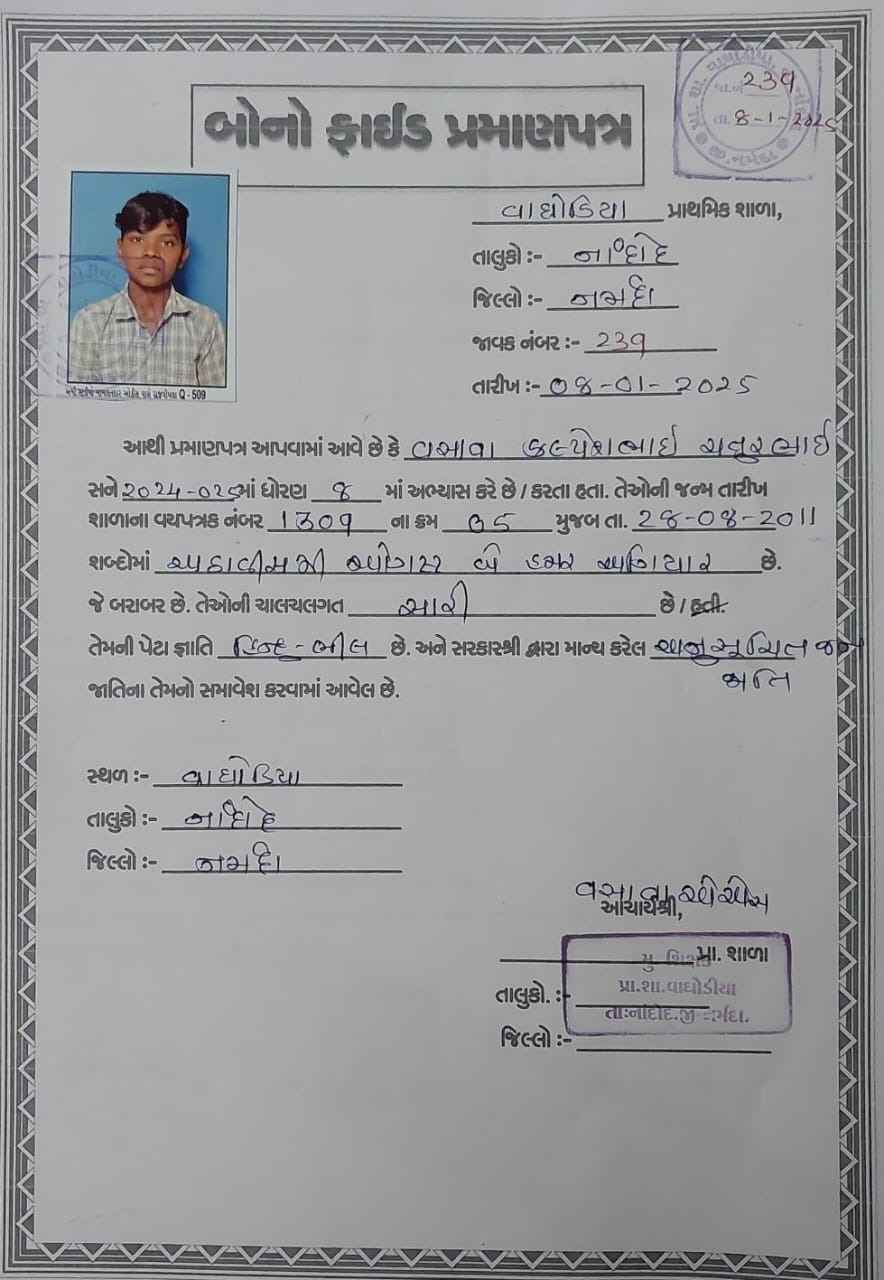 બોનો ફાઈડ પ્રમાણપત્ર
પા. શા. વાઘોડીયા
જા.નં 239
તા. 8-1-2025
જી.નર્મદા
વાઘોડિયા પ્રાથમિક શાળા,
તાલુકો :- નાંદોદ
જિલ્લો :- નર્મદા
જાવક નંબર :- 239
તારીખ :- 08-01-2025
Q - 509
આથી પ્રમાણપત્ર આપવામાં આવે છે કે વસાવા કલ્પેશભાઈ ચતુરભાઈ
સને 2024-025માં ધોરણ 8 માં અભ્યાસ કરે છે / કરતા હતા. તેઓની જન્મ તારીખ
શાળાના વયપત્રક નંબર 1309 ના ક્રમ 05 મુજબ તા. 28-08-2011
શબ્દોમાં અઠાવીસમી ઓગસ્ટ બે હજાર અગિયાર છે.
જે બરાબર છે. તેઓની ચાલચલગત સારી છે / હતી.
તેમની પેટા જ્ઞાતિ હિન્દુ-ભીલ છે. અને સરકારશ્રી દ્વારા માન્ય કરેલ અનુસૂચિત જન
જાતિ
જાતિના તેમનો સમાવેશ કરવામાં આવેલ છે.
સ્થળ :- વાઘોડિયા
તાલુકો :- નાંદોદ
જિલ્લો :- નર્મદા
વસાવા
આચાર્યશ્રી,
પ્રા. શાળા
મુ. શિક્ષક
પ્રા.શા.વાઘોડીયા
તાલુકો. :-
તાઃનાંદોદ.જી-નર્મદા.
જિલ્લો :-